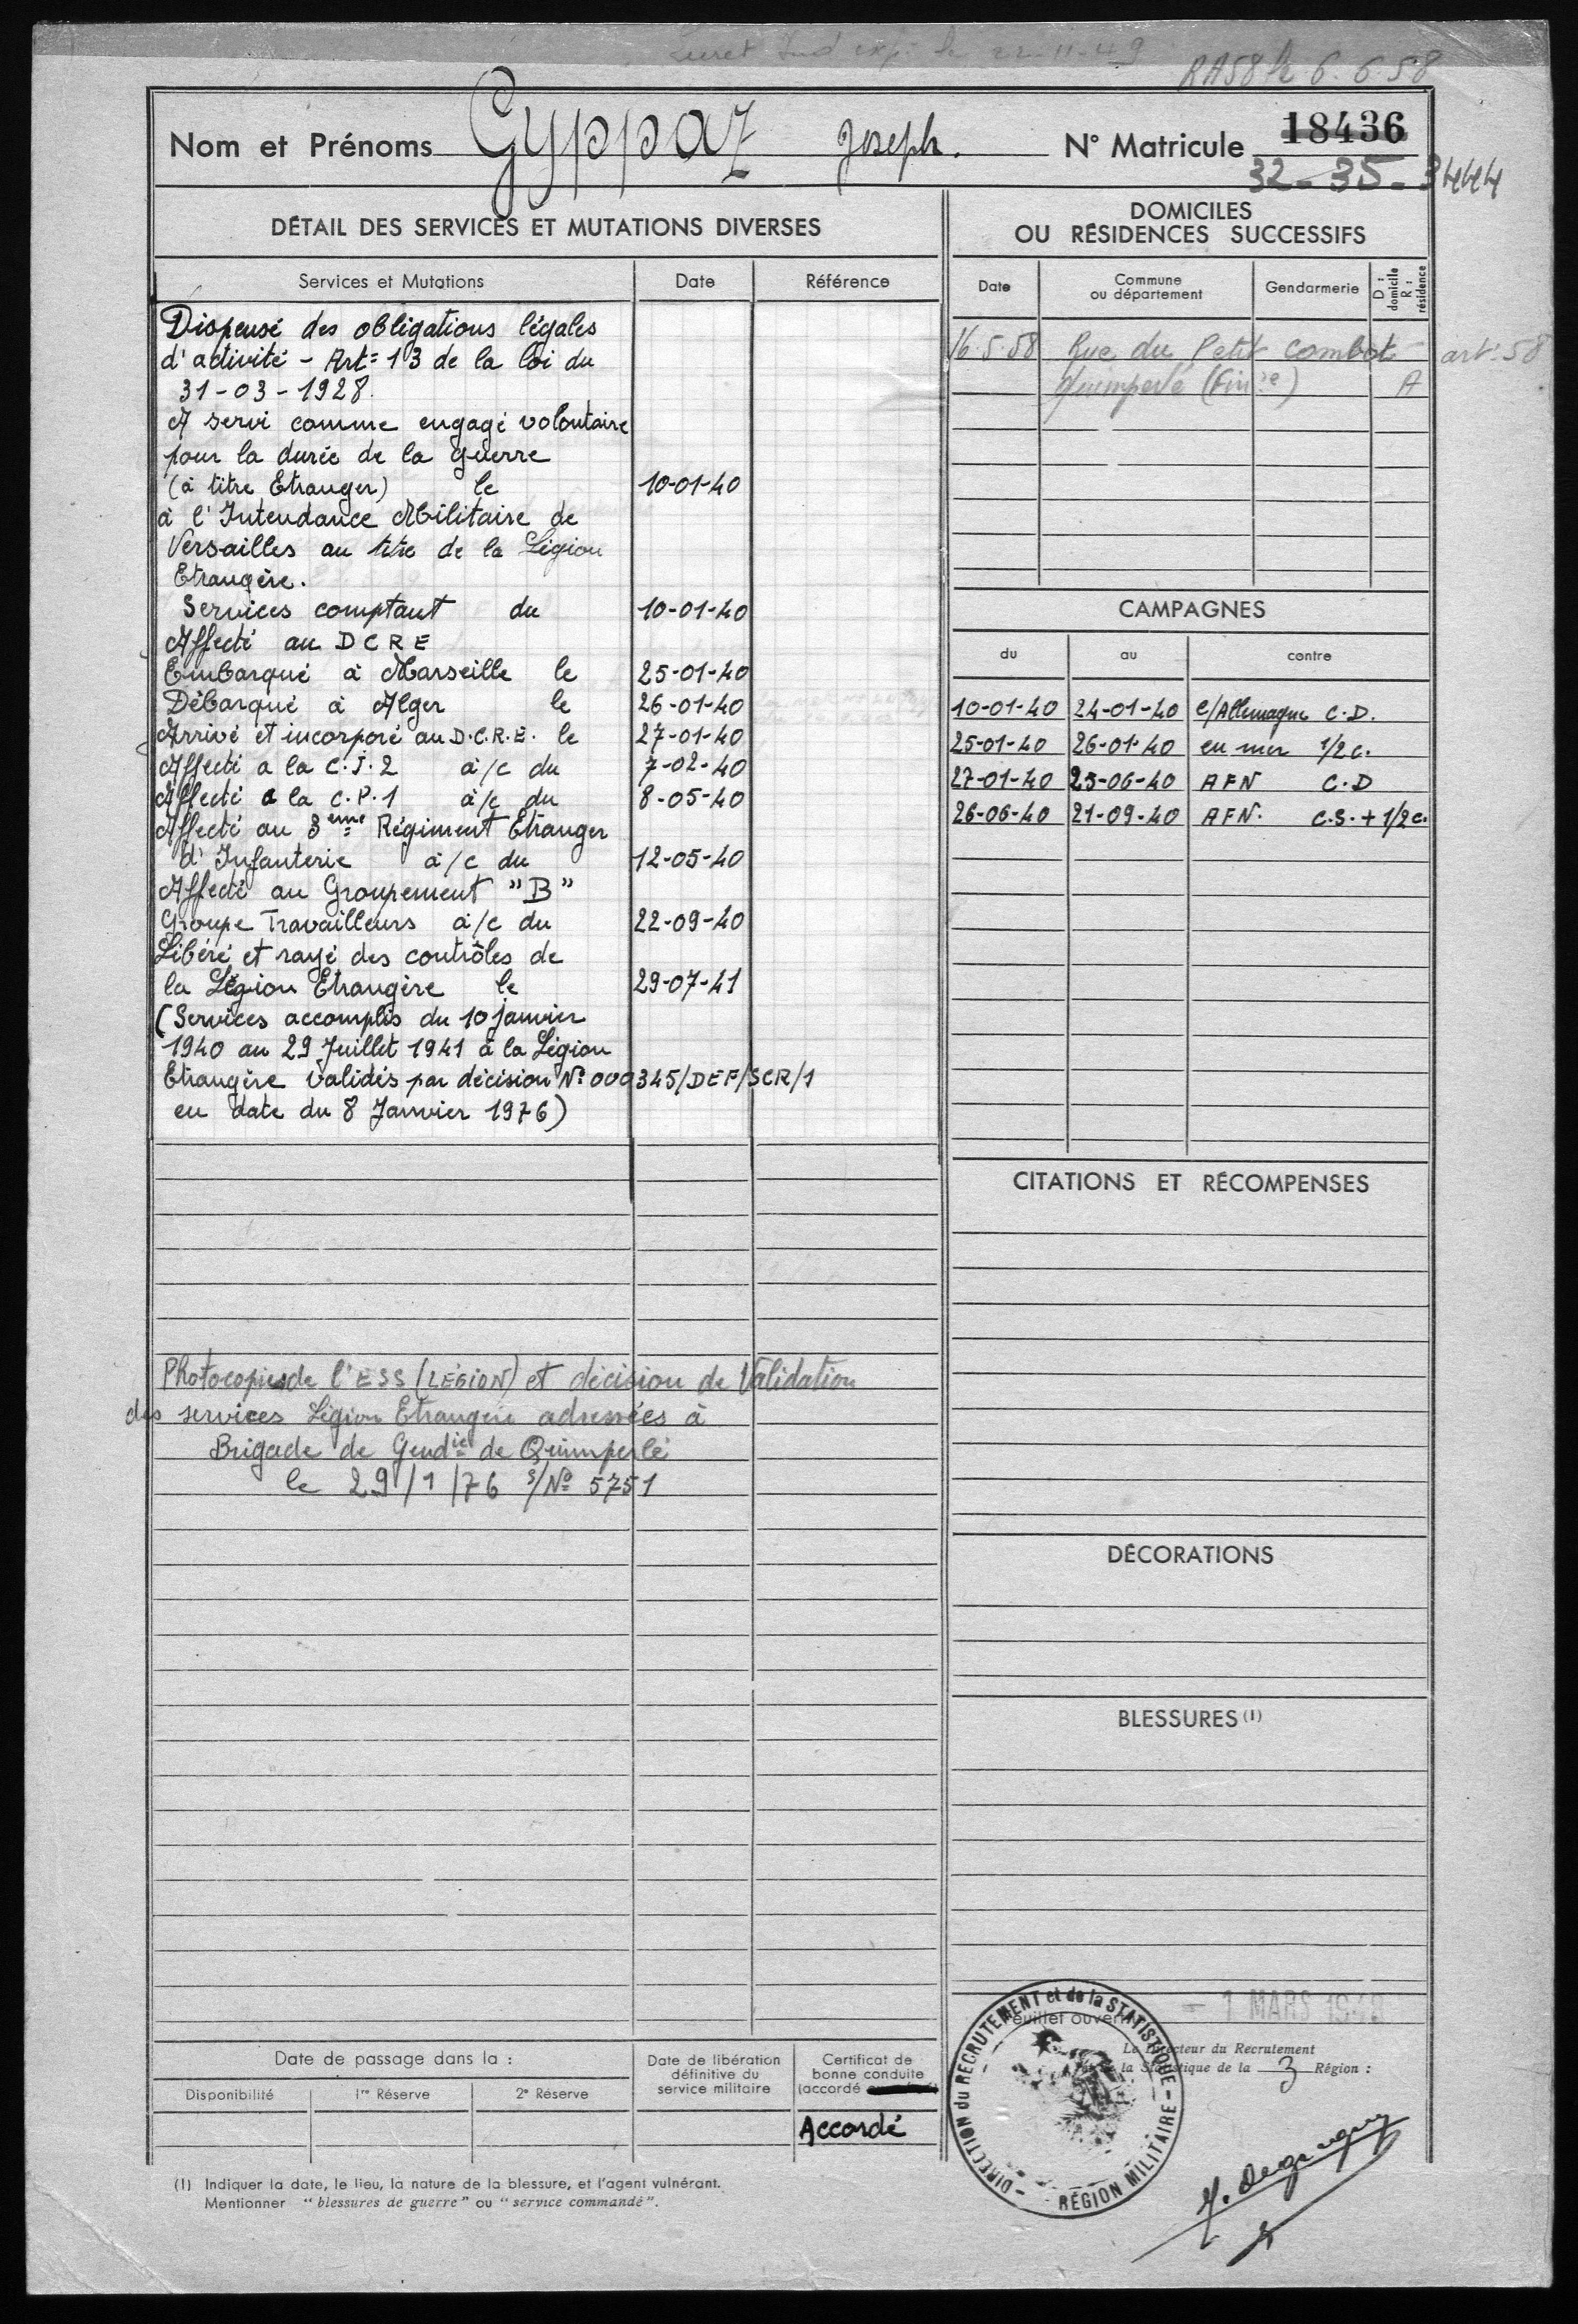 le 22-11-49
RA58 le 6.6.58
Nom et Prénoms Gyppaz Joseph. N° Matricule 18436
32-35-3444
DÉTAIL DES SERVICES ET MUTATIONS DIVERSES
Services et Mutations Date Référence
Dispensé des obligations légales
d'activité - Art= 13 de la loi du
31-03-1928.
A servi comme engagé volontaire
pour la durée de la guerre
(à titre Etranger) le 10-01-40
à l'Intendance Militaire de
Versailles au titre de la Légion
Etrangère.
Services comptant du 10-01-40
Affecté au DCRE
Embarqué à Marseille le 25-01-40
Débarqué à Alger le 26-01-40
Arrivé et incorporé au D.C.R.E. le 27-01-40
Affecté a la C.J.2 à/c du 7-02-40
Affecté a la C.P.1 à/c du 8-05-40
Affecté au 3ème Régiment Etranger
d'Infanterie à/c du 12-05-40
Affecté au Groupement "B"
Groupe Travailleurs à/c du 22-09-40
Libéré et rayé des contrôles de
la Légion Etrangère le 29-07-41
(Services accomplis du 10 janvier
1940 au 29 Juillet 1941 à la Légion
Etrangère validés par décision N° 000345/DEF/SCR/1
en date du 8 Janvier 1976)
Photocopies de l'ESS (LÉGION) et décision de Validation
des services Légion Etrangère adressées à
Brigade de Gendie de Quimperlé
le 29/1/76 s/N° 5751
Date de passage dans la :
Disponibilité 1re Réserve 2e Réserve
Date de libération
définitive du
service militaire
Certificat de
bonne conduite
(accordé
Accordé
(1) Indiquer la date, le lieu, la nature de la blessure, et l'agent vulnérant.
Mentionner "blessures de guerre" ou "service commandé".
DOMICILES
OU RÉSIDENCES SUCCESSIFS
Date Commune
ou département Gendarmerie D : domicile
R : résidence
16.5.58 Rue du Petit Combot art: 58
Quimperlé (Finre) A
CAMPAGNES
du au contre
10-01-40 24-01-40 C/Allemagne C.D.
25-01-40 26-01-40 en mer 1/2 C.
27-01-40 25-06-40 AFN C.D
26-06-40 21-09-40 AFN. C.S. + 1/2 C.
CITATIONS ET RÉCOMPENSES
DÉCORATIONS
BLESSURES (1)
Feuillet ouvert - 1 MARS
Le Directeur du Recrutement
la Statistique de la 3 Région :
DIRECTION du RECRUTEMENT et de la STATISTIQUE - RÉGION MILITAIRE -